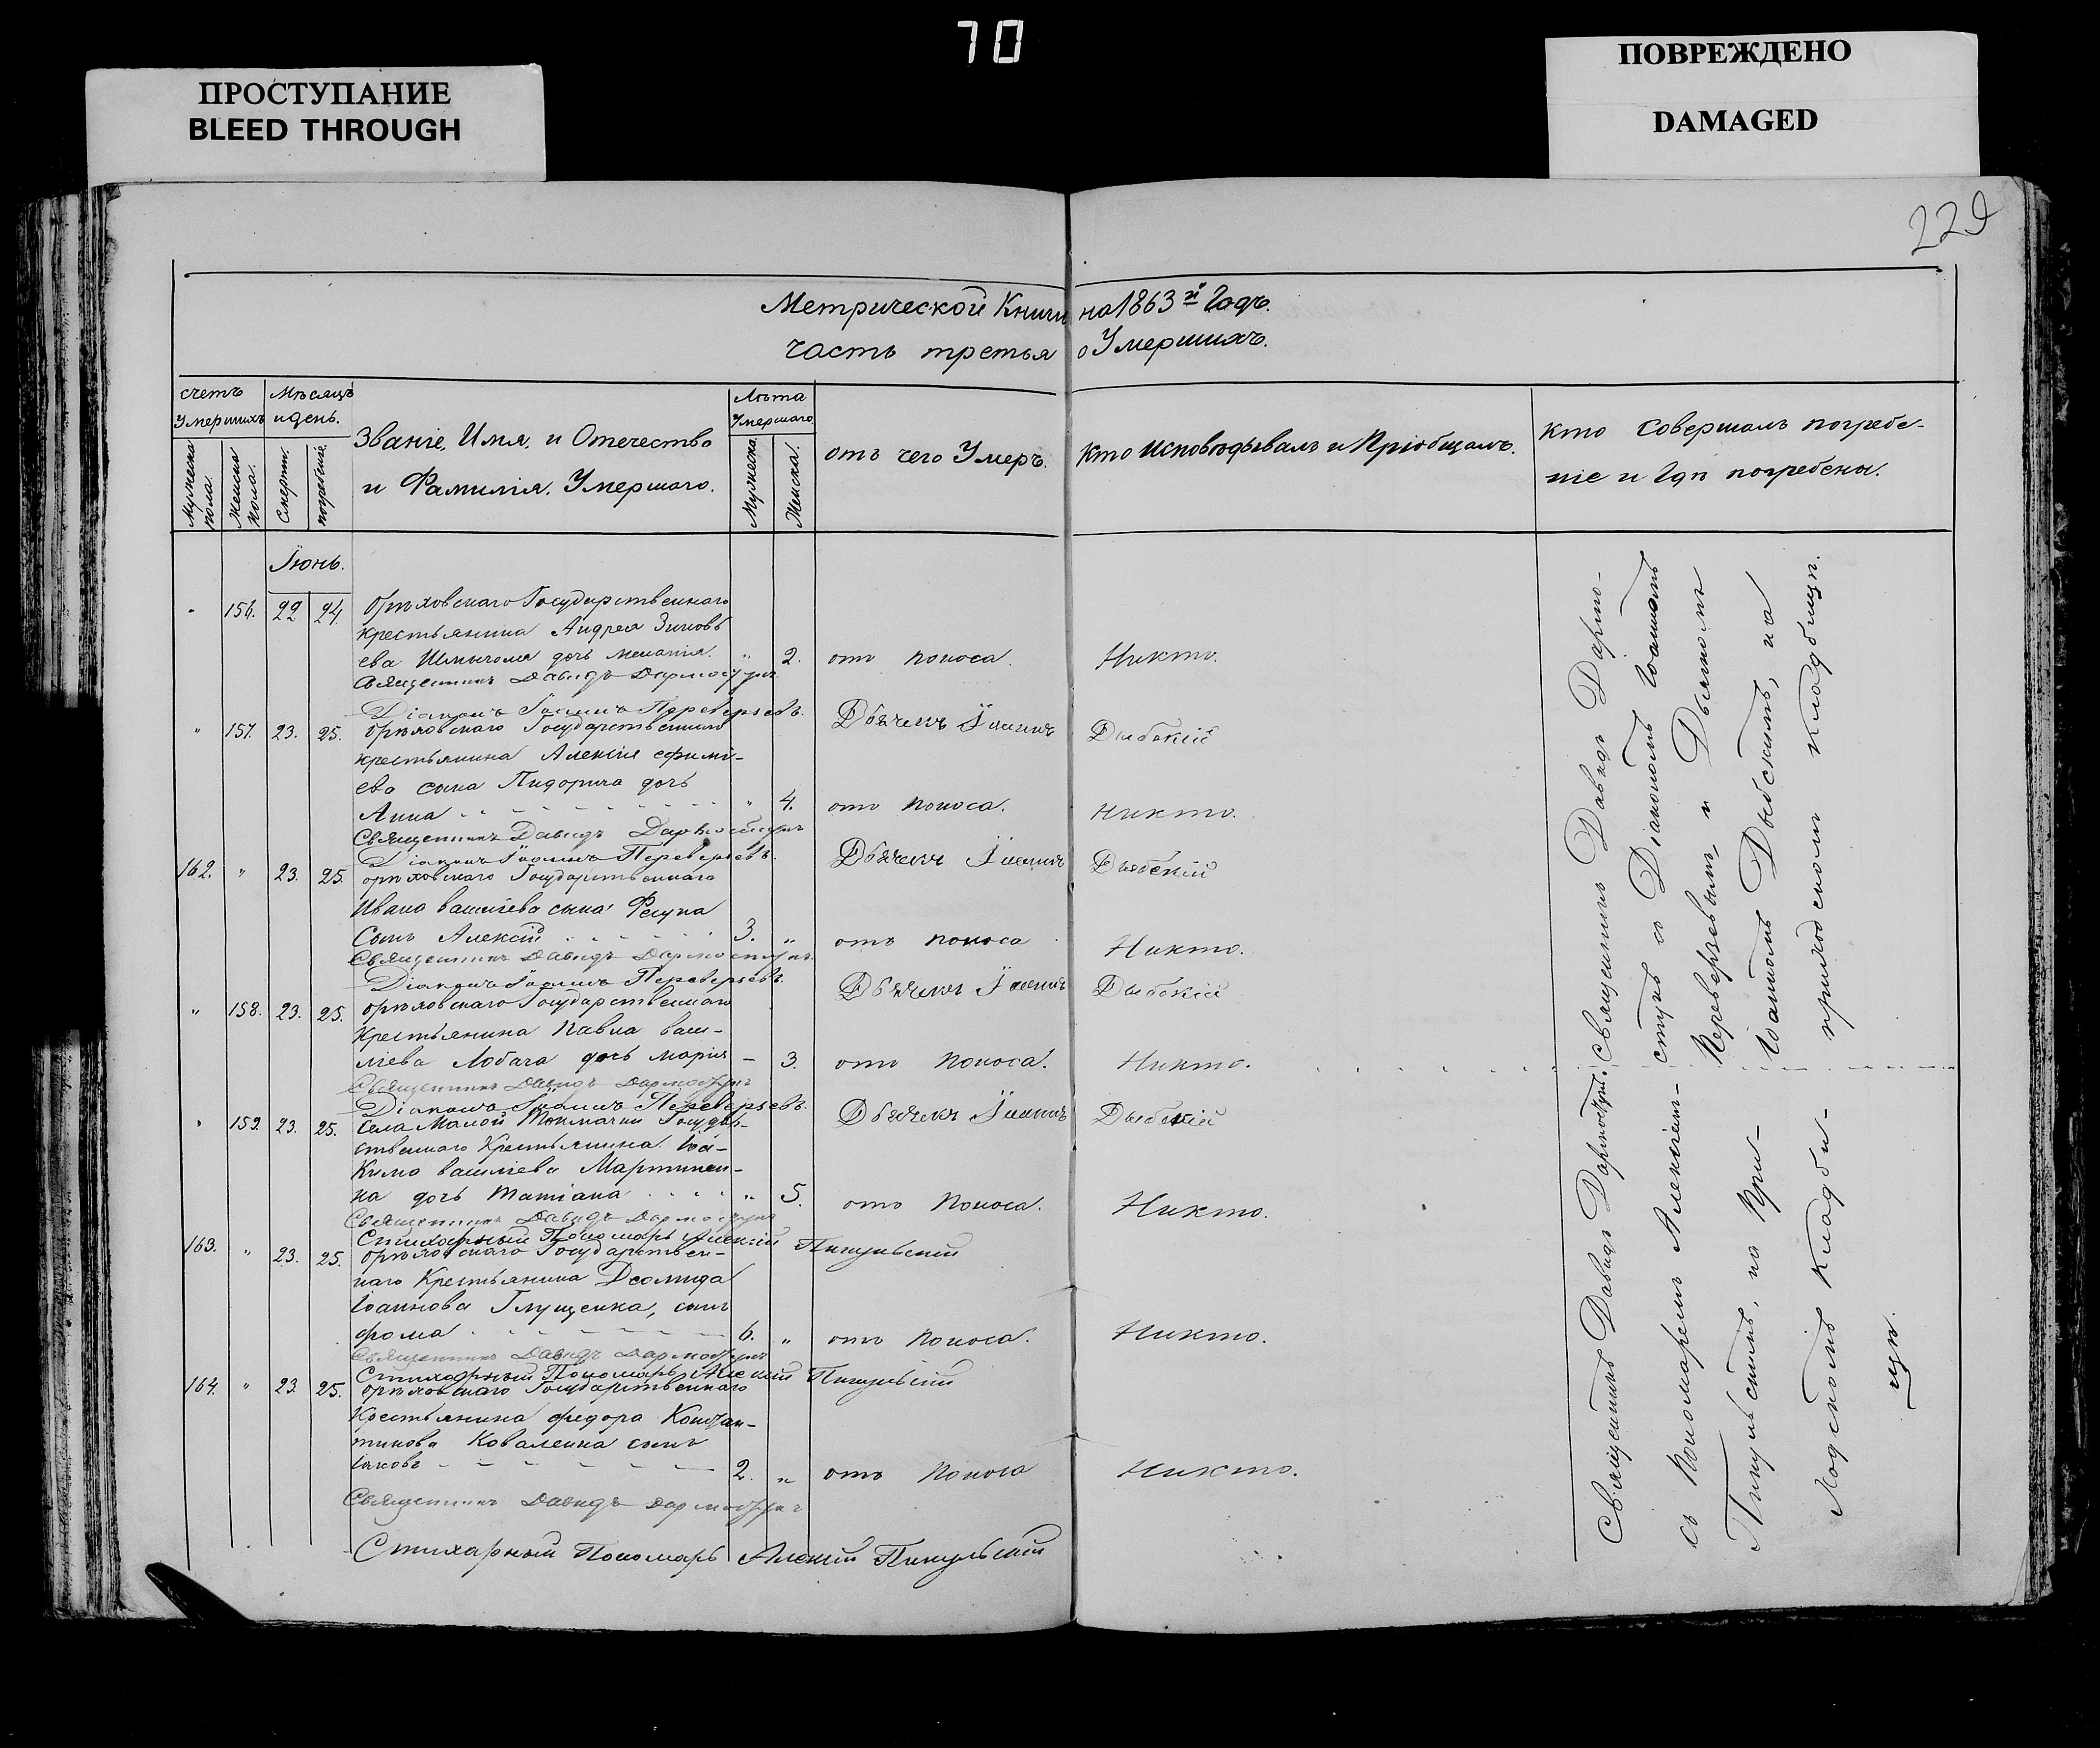 70
ПРОСТУПАНИЕ
BLEED THROUGH
ПОВРЕЖДЕНО
DAMAGED
229
Метрической Книги на 1863й Годъ.
часть третья о Умершихъ.
счетъ Умершихъ
Мужеска пола.
Женска пола.
Мѣсяцъ и день.
Смерти.
погребенія.
Званіе, Имя, и Отечество
и Фамилія, Умершаго.
Лѣта Умершаго
Мужеска
Женска.
отъ чего Умеръ.
Кто Исповѣдывалъ и Пріобщалъ.
Кто Совершалъ погребе-
ніе и Гдѣ погребены.
Іюнь.
" 156. 22 24. Орѣховскаго Государственнаго
Крестьянина Андрея Зиновь
ева дочь Меланія. " 2. отъ поноса. Никто.
Священникъ Давидъ
Діаконъ Іоаннъ Переверзевъ. Дьячекъ Іоаннъ Дыбскій
" 157. 23. 25. Орѣховскаго Государственнаго
Крестьянина Алексія Ефимі-
ева сына Пидорича дочь
Анна " 4. отъ поноса. Никто.
Священникъ Давидъ
Діаконъ Іоаннъ Переверзевъ. Дьячекъ Іоаннъ Дыбскій
162. " 23. 25. Орѣховскаго Государственнаго
Ивана Василіева сына
Сынъ Алексій 3. " отъ поноса Никто.
Священникъ Давидъ
Діаконъ Іоаннъ Переверзевъ. Дьячекъ Іоаннъ Дыбскій
" 158. 23. 25. Орѣховскаго Государственнаго
Крестьянина Павла Васи-
ліева Лобача дочь Марія – 3. отъ поноса. Никто.
Священникъ Давидъ
Діаконъ Іоаннъ Переверзевъ. Дьячекъ Іоаннъ Дыбскій
" 159. 23. 25. Села Малой Токмачки Государ-
ственнаго Крестьянина Іоа-
кима Василіева Мартинен-
ка дочь Татіана " 5. отъ поноса. Никто.
Священникъ Давидъ
Стихарный Пономарь Алексій Пикульскій
163. " 23. 25. Орѣховскаго Государствен-
наго Крестьянина Деомида
Іоаннова Глущенка, сынъ
Фома 6. " отъ поноса. Никто.
Священникъ Давидъ
Стихарный Пономарь Алексій Пикульскій
164. " 23. 25. Орѣховскаго Государственнаго
Крестьянина Федора Констан-
тинова Коваленка сынъ
Іаковъ 2. " отъ поноса Никто.
Священникъ Давидъ
Стихарный Пономарь Алексій Пикульскій
Священникъ Давидъ
съ Діакономъ Іоанномъ
Переверзевымъ, и Дьячкомъ
Іоанномъ Дыбскимъ, на
приходскомъ кладбищѣ.
Священникъ Давидъ
съ Пономаремъ Алексіем-
Пикульскимъ, на При-
ходскомъ Кладби-
щѣ.